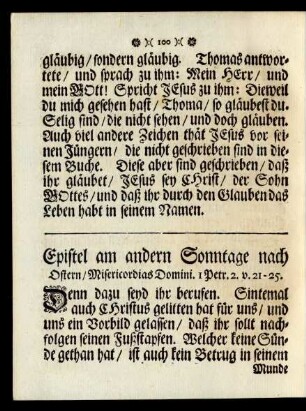 100
gläubig/ sondern gläubig. Thomas antwor-
tete/ und sprach zu ihm: Mein HErr/ und
mein GOtt! Spricht JEsus zu ihm: Dieweil
du mich gesehen hast/ Thoma/ so gläubest du.
Selig sind/ die nicht sehen/ und doch gläuben.
Auch viel andere Zeichen thät JEsus vor sei-
nen Jüngern/ die nicht geschrieben sind in die-
sem Buche. Diese aber sind geschrieben/ daß
ihr gläubet/ JEsus sey CHrist/ der Sohn
GOttes/ und daß ihr durch den Glauben das
Leben habt in seinem Namen.
Epistel am andern Sonntage nach
Ostern/ Misericordias Domini. 1 Petr. 2. v. 21-25.
Denn dazu seyd ihr berufen. Sintemal
auch CHristus gelitten hat für uns/ und
uns ein Vorbild gelassen/ daß ihr sollt nach-
folgen seinen Fußstapfen. Welcher keine Sün-
de gethan hat/ ist auch kein Betrug in seinem
Munde